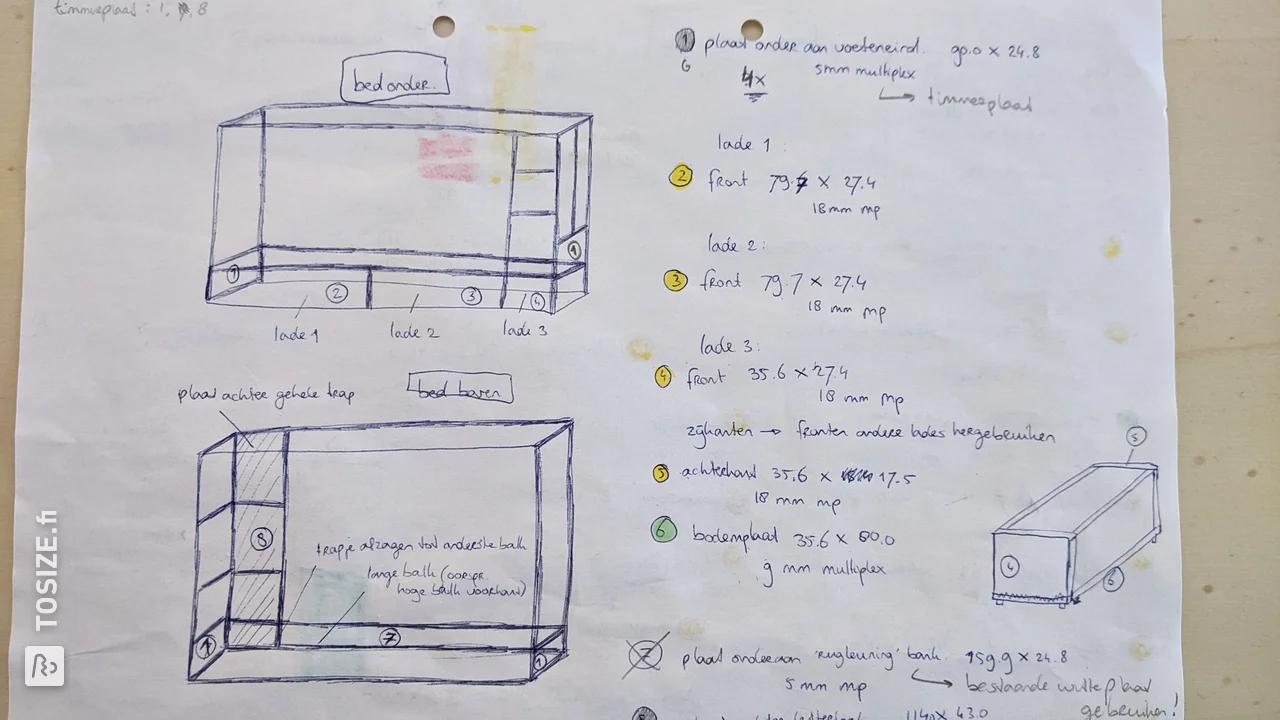 timmerplaat : 1, 8
bed onder.
lade 1
lade 2
lade 3
1
1
2
3
4
plaat achter gehele trap
bed boven
8
trapje afzagen tot onderste balk
lange balk (oorspr.
hoge balk voorkant)
7
1
1
1 plaat onder aan voeteneind. 90.0 x 24.8
G
4x
5mm multiplex
timmerplaat
lade 1 :
2 front 79.7 x 27.4
18mm mp
lade 2 :
3 front 79.7 x 27.4
18 mm mp
lade 3 :
4 front 35.6 x 27.4
18 mm mp
zijkanten → fronten andere lades hergebruiken
5 achterkant 35.6 x 17.5
18 mm mp
6 bodemplaat 35.6 x 80.0
9 mm multiplex
5
4
6
7 plaat onderaan 'rugleuning' bank. 159.9 x 24.8
5 mm mp
bestaande witte plaat
gebruiken!
43.0
TOSIZE.fi